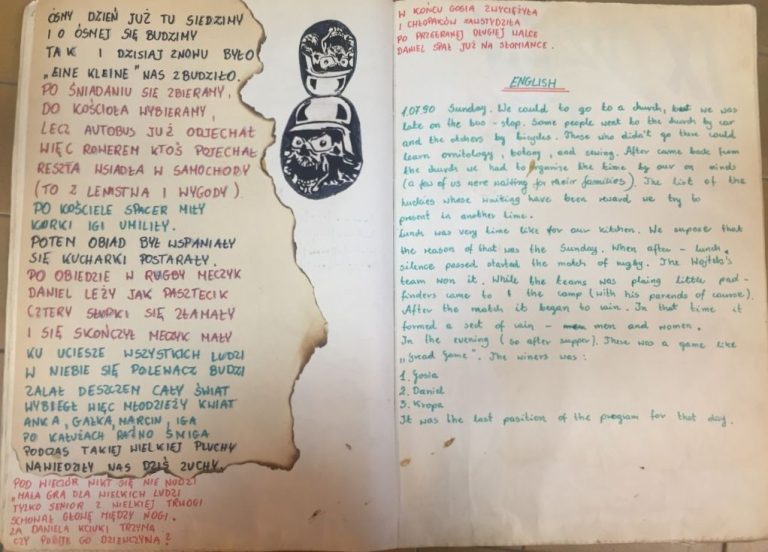 ÓSMY DZIEŃ JUŻ TU SIEDZIMY
I O ÓSMEJ SIĘ BUDZIMY
TAK I DZISIAJ ZNOWU BYŁO
„EINE KLEINE" NAS ZBUDZIŁO.
PO ŚNIADANIU SIĘ ZBIERAMY,
DO KOŚCIOŁA WYBIERAMY,
LECZ AUTOBUS JUŻ ODJECHAŁ
WIĘC ROWEREM KTOŚ POJECHAŁ
RESZTA WSIADŁA W SAMOCHODY
(TO Z LENISTWA I WYGODY)
PO KOŚCIELE SPACER MIŁY
KORKI IGI UMILIŁY.
POTEM OBIAD BYŁ WSPANIAŁY
SIĘ KUCHARKI POSTARAŁY.
PO OBIEDZIE W RUGBY MECZYK
DANIEL LEŻY JAK PASZTECIK
CZTERY SŁUPKI SIĘ ZŁAMAŁY
I SIĘ SKOŃCZYŁ MECZYK MAŁY
KU UCIESZE WSZYSTKICH LUDZI
W NIEBIE SIĘ POLEWACZ BUDZI
ZALAŁ DESZCZEM CAŁY ŚWIAT
WYBIEGŁ WIĘC MŁODZIEŻY KWIAT
ANKA, GAŁKA, MARCIN, IGA
PO KAŁUŻACH RAŹNO ŚMIGA
PODCZAS TAKIEJ WIELKIEJ PLUCHY
NAWIEDZIŁY NAS DZIŚ ZUCHY.
POD WIECZÓR NIKT SIĘ NIE NUDZI
„MAŁA GRA DLA WIELKICH LUDZI
TYLKO SENIOR Z WIELKIEJ TRWOGI
SCHOWAŁ GŁOWĘ MIĘDZY NOGI.
ZA DANIELA KCIUKI TRZYMA
CZY POBIJE GO DZIEWCZYNA?
W KOŃCU GOSIA ZWYCIĘŻYŁA
I CHŁOPAKÓW ZAWSTYDZIŁA
PO PRZEGRANEJ DŁUGIEJ WALCE
DANIEL SPAŁ JUŻ NA SŁOMIANCE.
ENGLISH
1.07.90 Sunday. We could to go to a church, but we was
late on the bus-stop. Some people went to the church by car
and the otchers by bicycles. These who didn't go there could
learn ornitology, botany, and sewing. After came back from
the church we had to organize the time by our on minds
(a few of us were waiting for their families). The list of the
luckies whose waiting have been reward we try to
present in another time.
Lunch was very time like for our kitchen. We supose that
the reason of that was the Sunday. When after-lunch
silence passed started the match of rugby. The Wojtek's
team won it. While the teams was plaing little pad-
finders came to the camp (with his parends of course).
After the match it began to rain. In that time it
formed a sect of rain - men and women.
In the evening (so after supper). There was a game like
„Great Game". The winers was:
1. Gosia
2. Daniel
3. Kropa
It was the last position of the program for that day.